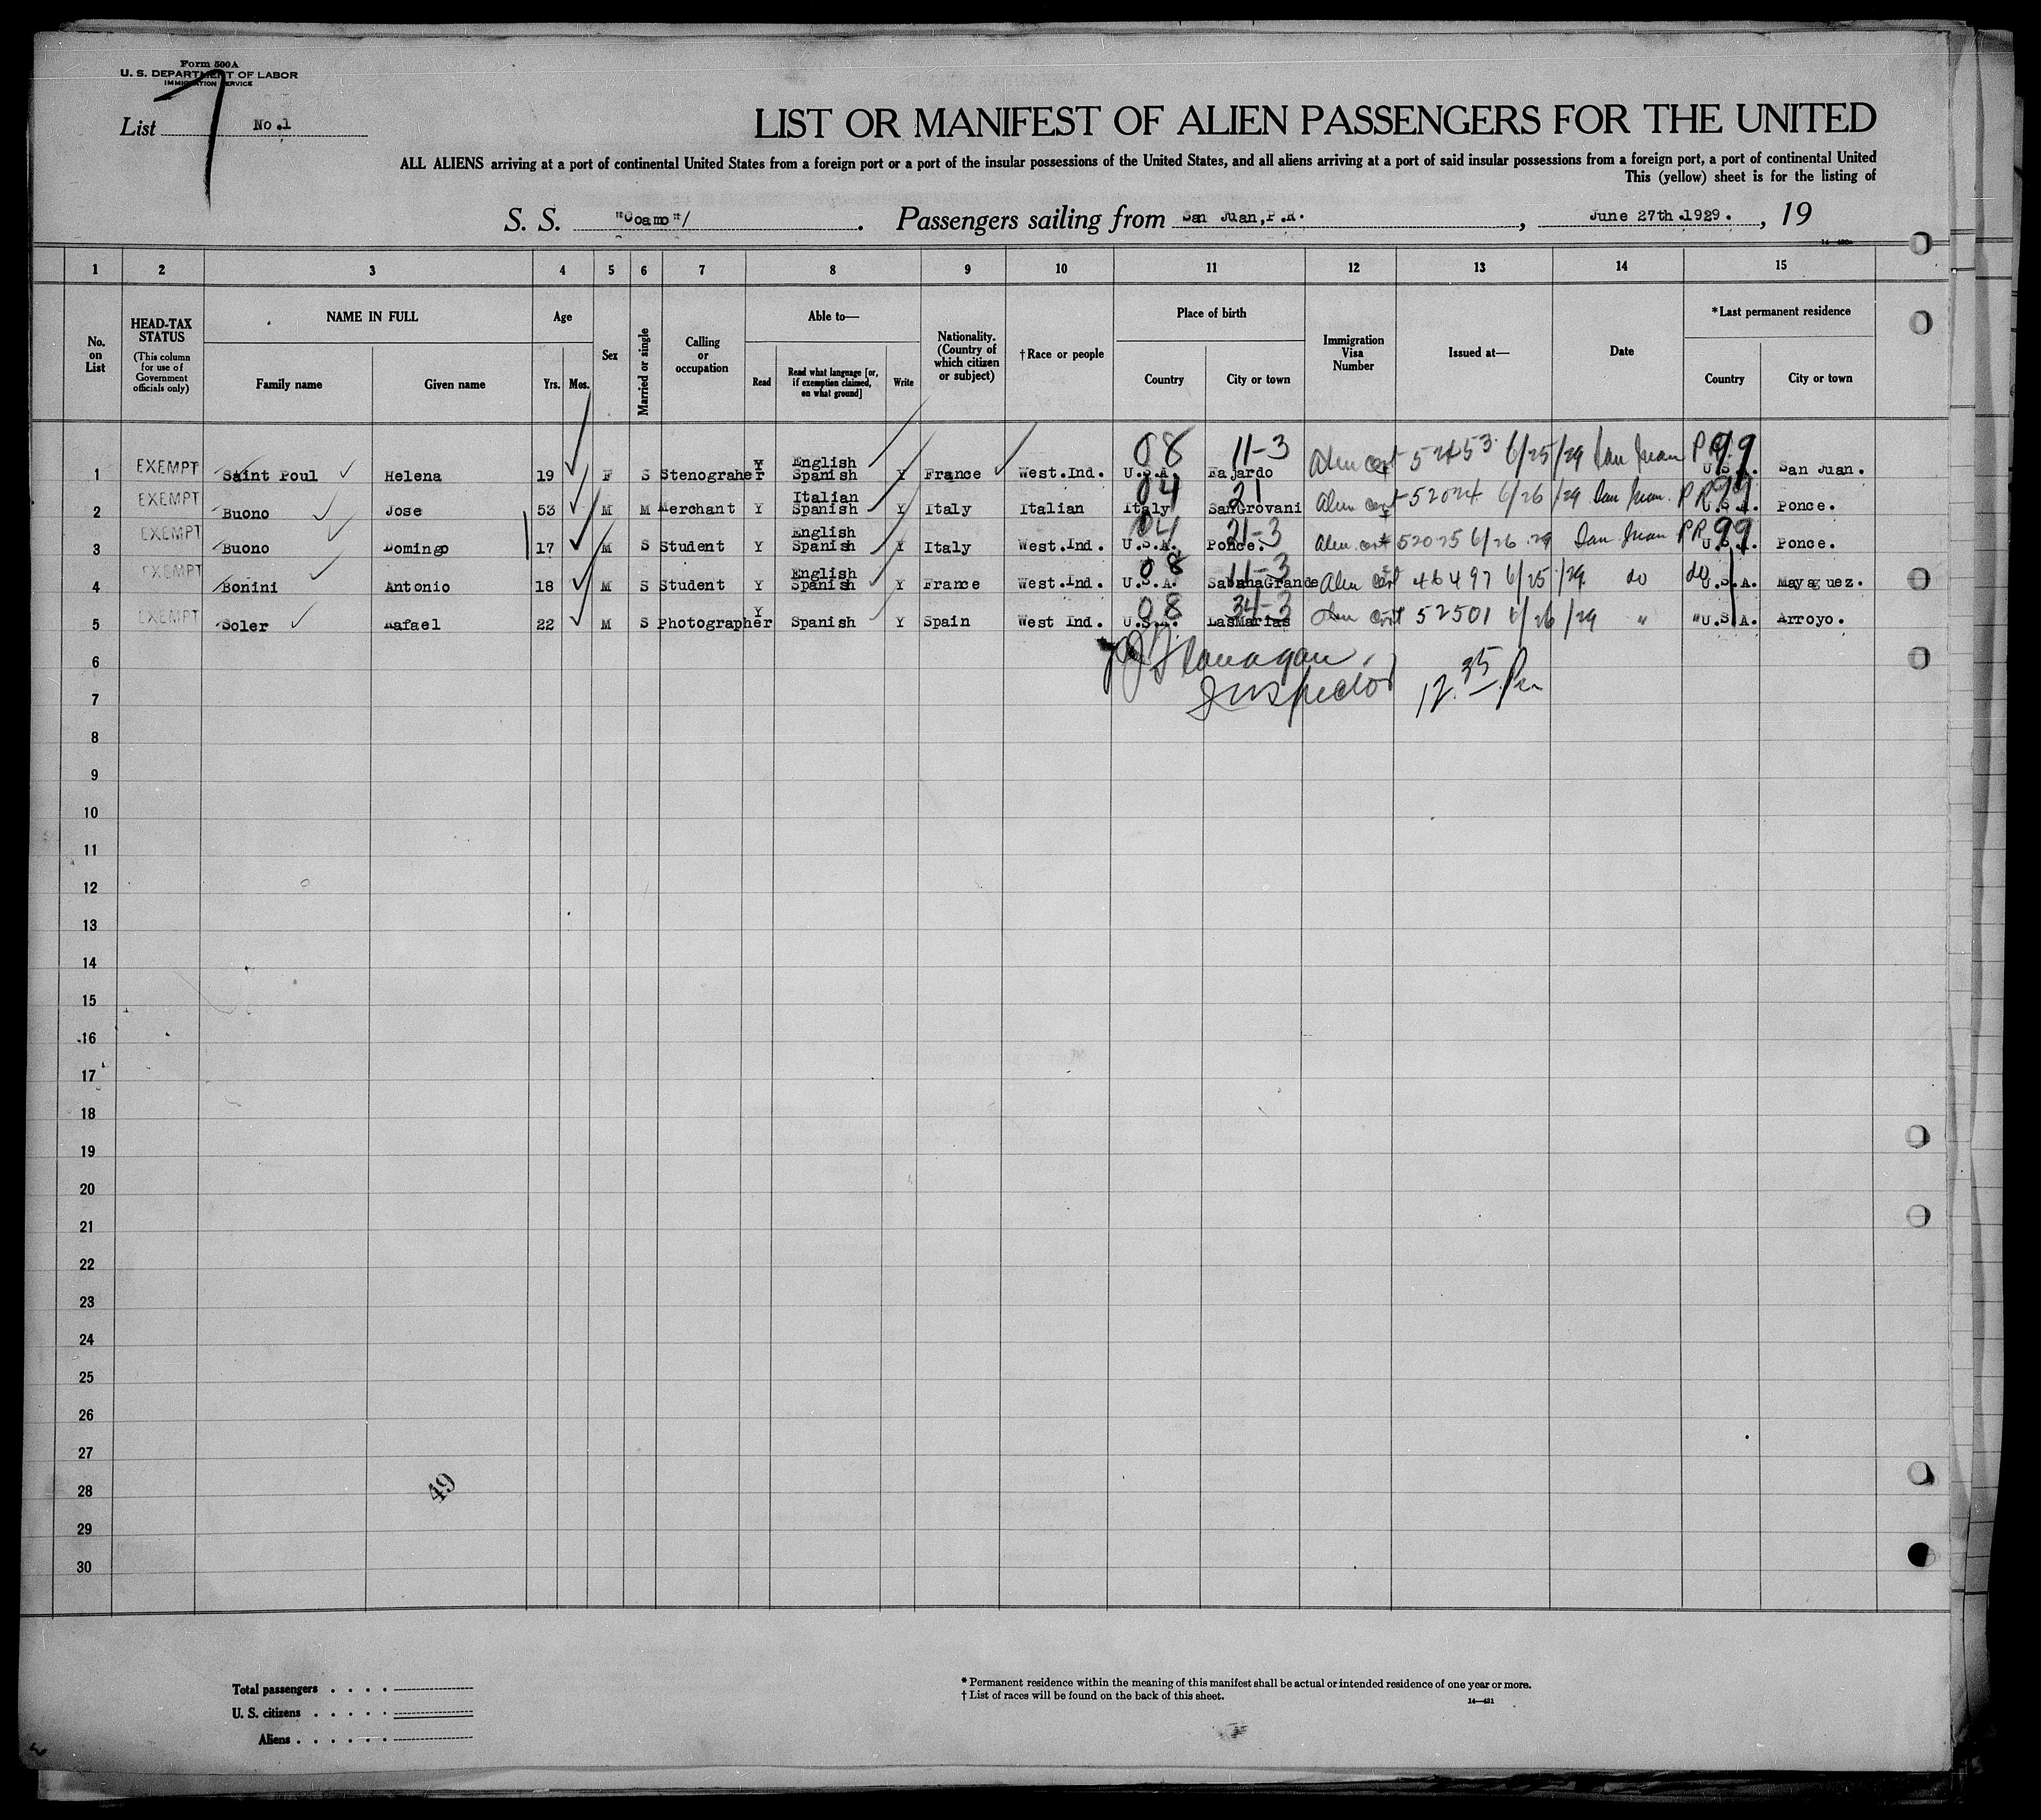 Form 500A
U. S. DEPARTMENT OF LABOR
IMMIGRATION SERVICE
List No.1
LIST OR MANIFEST OF ALIEN PASSENGERS FOR THE UNITED
ALL ALIENS arriving at a port of continental United States from a foreign port or a port of the insular possessions of the United States, and all aliens arriving at a port of said insular possessions from a foreign port, a port of continental United
This (yellow) sheet is for the listing of
S. S. "Coamo"/ . Passengers sailing from San Juan,P.R. , June 27th.1929. , 19
1 2 3 4 5 6 7 8 9 10 11 12 13 14 15
No. on List
HEAD-TAX STATUS
(This column for use of Government officials only)
NAME IN FULL
Family name
Given name
Age
Yrs. Mos.
Sex
Married or single
Calling or occupation
Able to—
Read
Read what language [or, if exemption claimed, on what ground]
Write
Nationality. (Country of which citizen or subject)
†Race or people
Place of birth
Country
City or town
Immigration Visa Number
Issued at—
Date
*Last permanent residence
Country
City or town
08 11-3
1 EXEMPT Saint Poul Helena 19 F S Stenographer Y English Spanish Y France West.Ind. U.S.A. Fajardo Alien cert 52453 6/25/29 San Juan P R 99 U.S.A. San Juan.
04 21
2 EXEMPT Buono Jose 53 M M Merchant Y Italian Spanish Y Italy Italian Italy SanGrovani Alien cert 52024 6/26/29 San Juan. P R 99 U.S.A. Ponce.
04 21-3
3 EXEMPT Buono Domingo 17 M S Student Y English Spanish Y Italy West.Ind. U.S.A. Ponce. Alien cert 52025 6/26 29 San Juan P R 99 U.S.A. Ponce.
08 11-3
4 EXEMPT Bonini Antonio 18 M S Student Y English Spanish Y France West.Ind. U.S.A. SabanaGrande Alien cert 46497 6/25/29 do do U.S.A. Mayaguez.
08 34-3
5 EXEMPT Soler Rafael 22 M S Photographer Y Spanish Y Spain West Ind. U.S.A. LasMarias Alien cert 52501 6/26/29 " " U.S.A. Arroyo.
6 Flanagan
Inspector 12.35 Pm
7
8
9
10
11
12
13
14
15
16
17
18
19
20
21
22
23
24
25
26
27
28 49
29
30
Total passengers . . . .
U. S. citizens . . . . .
Aliens . . . . . .
* Permanent residence within the meaning of this manifest shall be actual or intended residence of one year or more.
† List of races will be found on the back of this sheet.
14—431